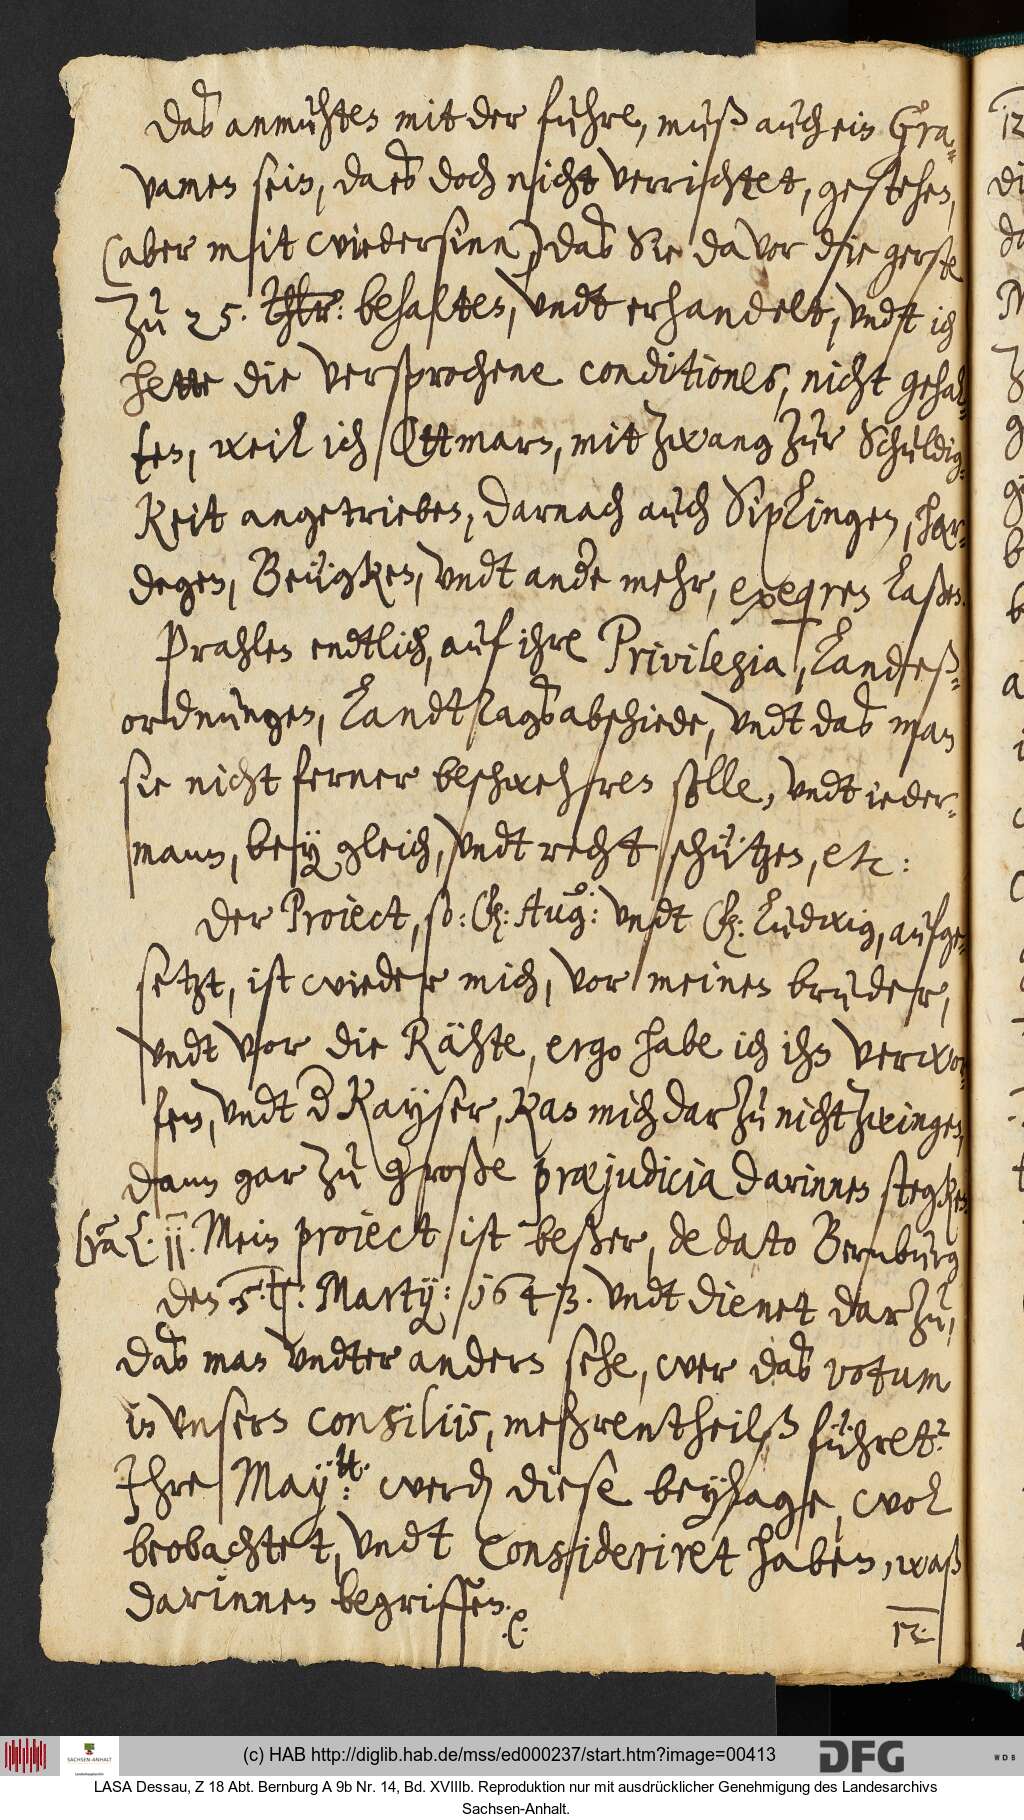 das anmuhten mit der fuhre, muß auch ein Gra-
vamen sein, da es doch nicht verrichtet, gestehen,
(aber mit wiedersinn) das Sie davor die gerste
zu 25. Thlr: behalten, undt erhandelt, undt ich
hette die versprochene conditiones, nicht gehal-
ten, weil ich Ottmarn, mit zwang zur Schuldig-
keit angetrieben, darnach auch Siplingen, har-
degen, Beuigken, undt andre mehr, exeqren laßen.
Prahlen endtlich, auf ihre Privilegia, Landeß-
ordnungen, Landtagsabschiede, undt das man
sie nicht ferner beschwehren solle, undt ieder-
mann, bey gleich, undt recht schützen, etc:
Der Project, so: Aug: undt Ludwig, aufge-
setzt, ist wieder mich, vor meinen bruder,
undt vor die Rähte, ergo habe ich ihn verwor-
fen, undt d Kayser, kan mich darzu nicht zwingen,
dann gar zu große præjudicia darinnen stegken.
II. Mein project ist beßer, de dato Bernburg
den 5.t: Martij: 1643. undt dienet darzu,
das man undter andern sehe, wer das votum
in unsern consiliis, mehrentheilß führet?
Ihre May:tt: werden diese beylage, wol
beobachtet, undt consideriret haben, waß
darinnen begriffen. e.
12.
(c) HAB http://diglib.hab.de/mss/ed000237/start.htm?image=00413
SACHSEN-ANHALT
DFG
WDB
LASA Dessau, Z 18 Abt. Bernburg A 9b Nr. 14, Bd. XVIIIb. Reproduktion nur mit ausdrücklicher Genehmigung des Landesarchivs
Sachsen-Anhalt.